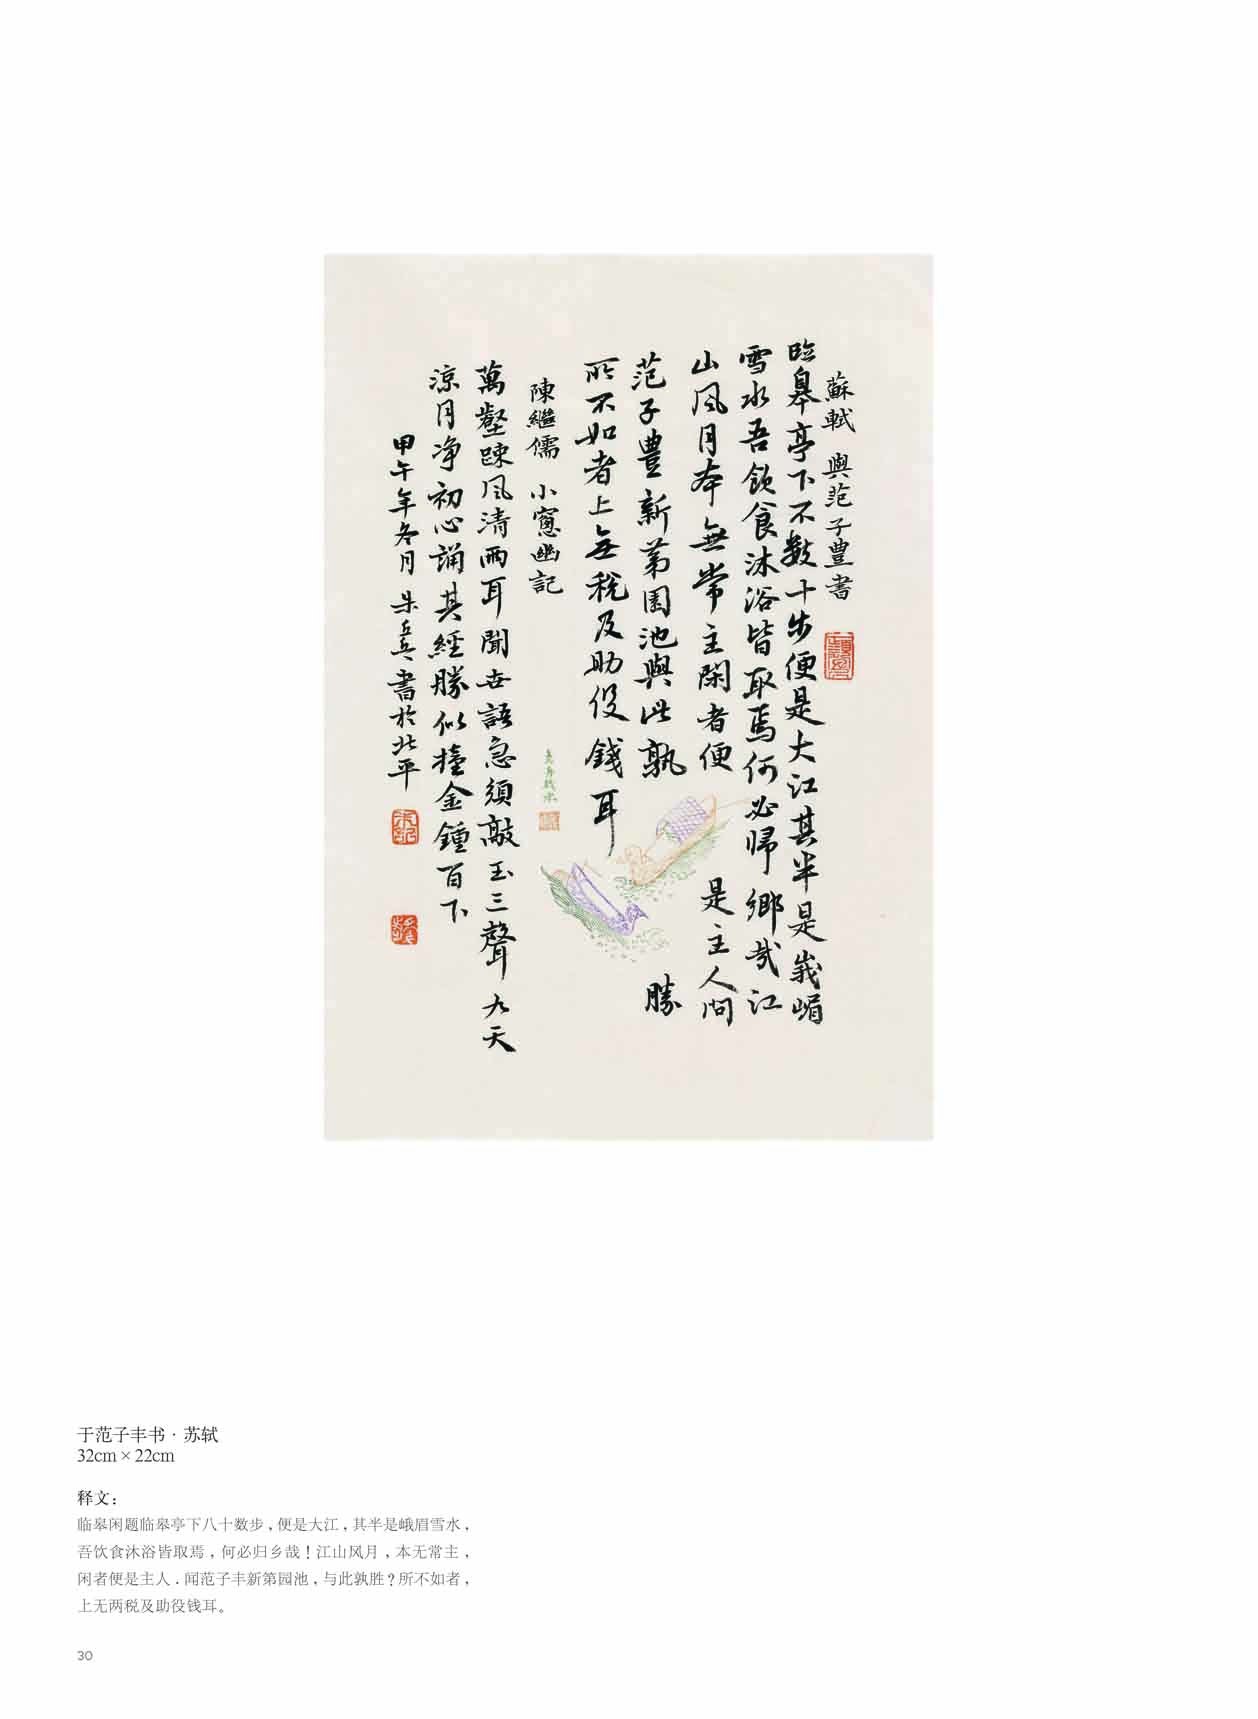 蘇軾 與范子豊書
臨皋亭下不數十步便是大江其半是峩嵋
雪水吾飲食沐浴皆取焉何必歸鄉哉江
山風月本無常主閑者便是主人問
范子豊新第園池與此孰勝
所不如者上無税及助役錢耳
陳繼儒 小窻幽記
萬壑踈風清兩耳聞世語急須敲玉三聲九天
涼月净初心誦其經勝似撞金鐘百下
甲午年冬月 朱兵書於北平
于范子丰书 · 苏轼
32cm × 22cm
释文：
临皋闲题临皋亭下八十数步，便是大江，其半是峨眉雪水，
吾饮食沐浴皆取焉，何必归乡哉！江山风月，本无常主，
闲者便是主人．闻范子丰新第园池，与此孰胜？所不如者，
上无两税及助役钱耳。
30